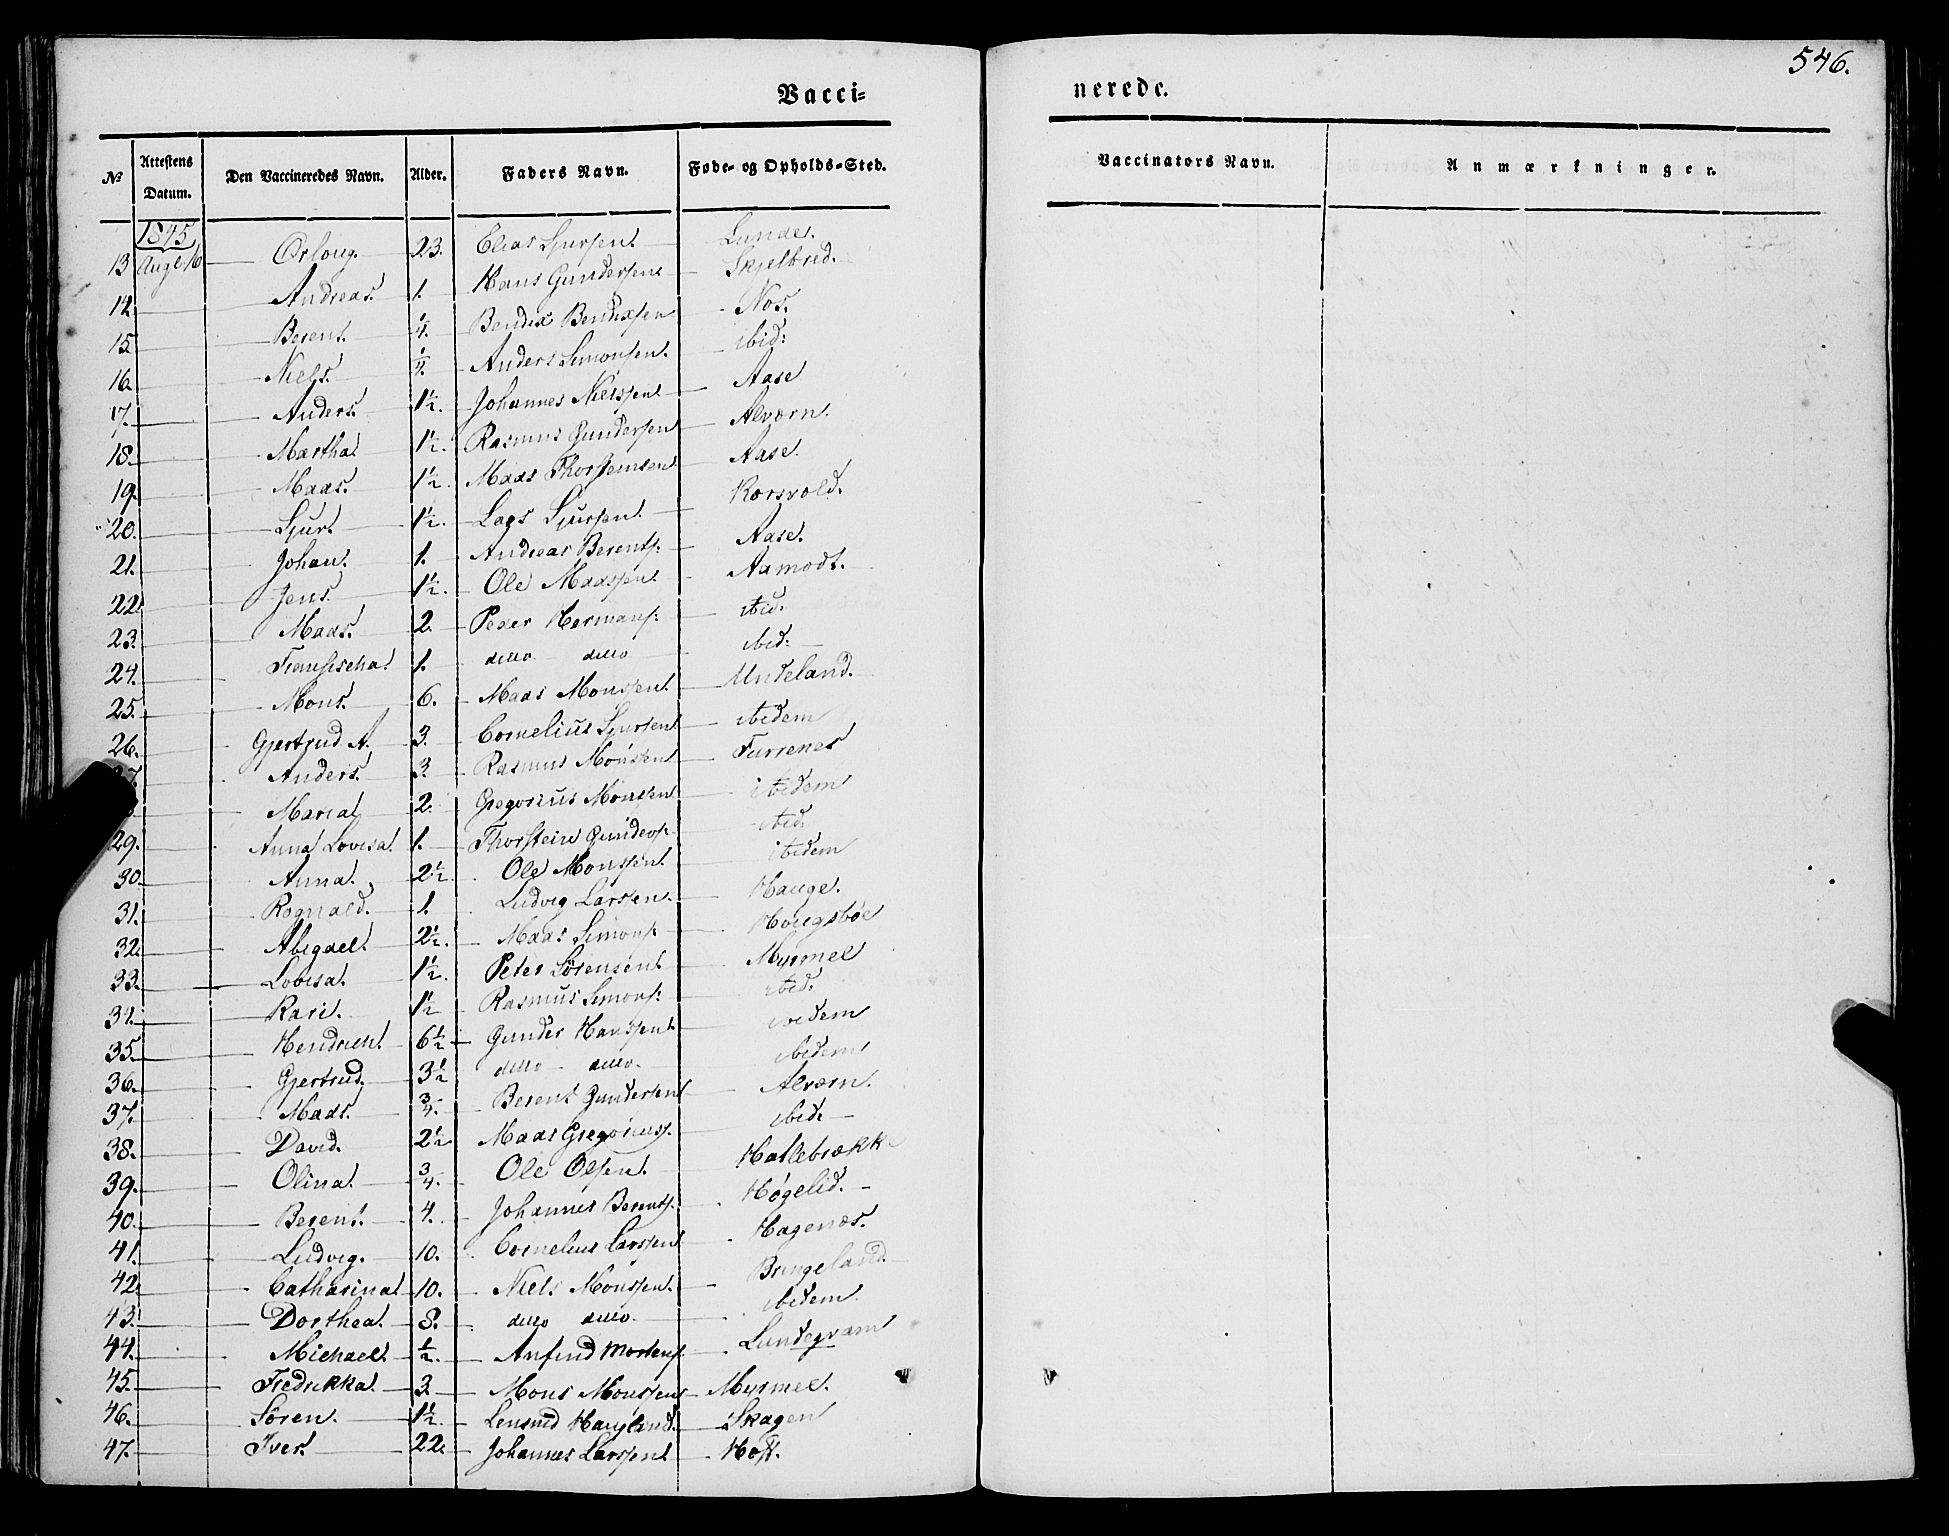 546.
Vacci= nerede.
No Attestens Datum. Den Vaccineredes Navn. Alder. Faders Navn. Føde- og Opholds-Sted. Vaccinators Navn. Anmærkninger.
1845
13 Aug 16 Orloug. 23. Elias Sjursen Lunde.
14. Andreas. 1. Hans Gundersen Skjelbred.
15. Berent. 1/4. Bendix Bendixsen Nos.
16. Niels. 1/4. Anders Simonsen. ibid:
17. Anders. 1½. Johannes Nielssen Aase
18. Martha 1½. Rasmus Gundersen Alværn.
19. Maas. 1½ Maas Thorstensen Aase.
20. Sjur 1½. Lars Sjursen. Korsvold.
21. Johan. 1. Andreas Berents. Aase.
22. Jens. 1½. Ole Maassen. Aamodt.
23. Maas. 2. Peder Hermans: ibid.
24. 1. ditto ditto ibid:
25. Mons. 6. Maas Monssen. Undeland.
26. Gjertrud A. 3. Cornelius Sjursen ibidem
Anders. 3. Rasmus Monssen Furrenes
Maria 2. Gregorius Monssen ibidem
29. Anna Lovisa. 1. Thorstein Gunders. ibid.
30. Anna. 2½ Ole Monssen. ibidem
31. Rognald. 1. Ludvig Larsen. Hauge.
32. Abigael. 2½. Maas Simons. Hougsbøe
33. Lovisa. 1½. Peter Sørensen Myrmel
34. Kari. 1½ Rasmus Simons: ibid.
35. Hendrich. 6½ Gunder Hanssen ibidem
36. Gjertrud. 3½ ditto ditto. ibidem
37. Maas. 3/4. Berent Gundersen Alværn.
38. David. 2½ Maas Gregoriuss. ibid.
39. Olina. 3/4. Ole Olsen. Hatlebrække
40. Berent. 4. Johannes Berents. Høgelid.
41. Ludvig. 10. Cornelius Larssen Hagenæs.
42. Catharina 10. Niels Monssen. Bringeland.
43. Dorthea. 8. ditto ditto. ibidem.
44. Michael. ½. Anfind Mortens. Lundegram
45. Fredrikka. 3. Mons Monssen Myrmel.
46. Sören. 1½ Haugland. Skagen
47. Iver. 22. Johannes Larssen Hoff.